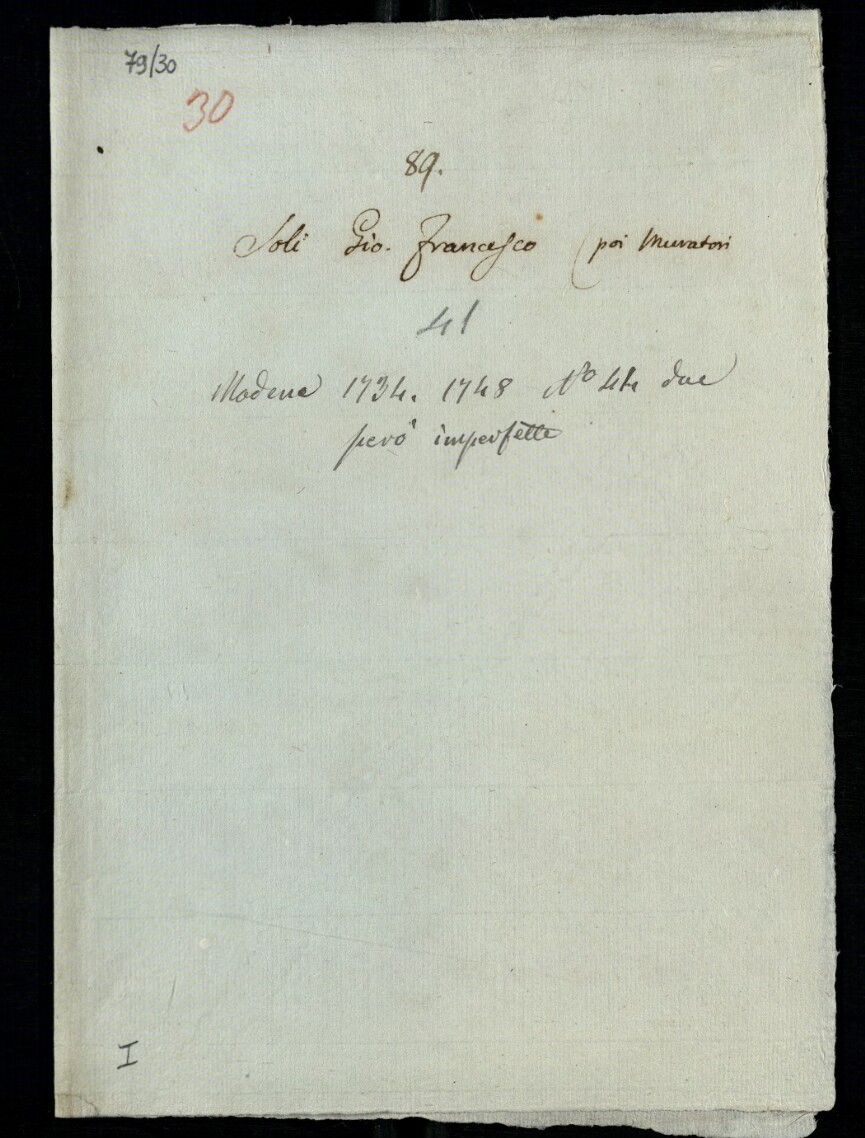 79/30
30
89.
Soli Gio. Francesco (poi Muratori
41
Modena 1734. 1748 No 44 due
però imperfette
I